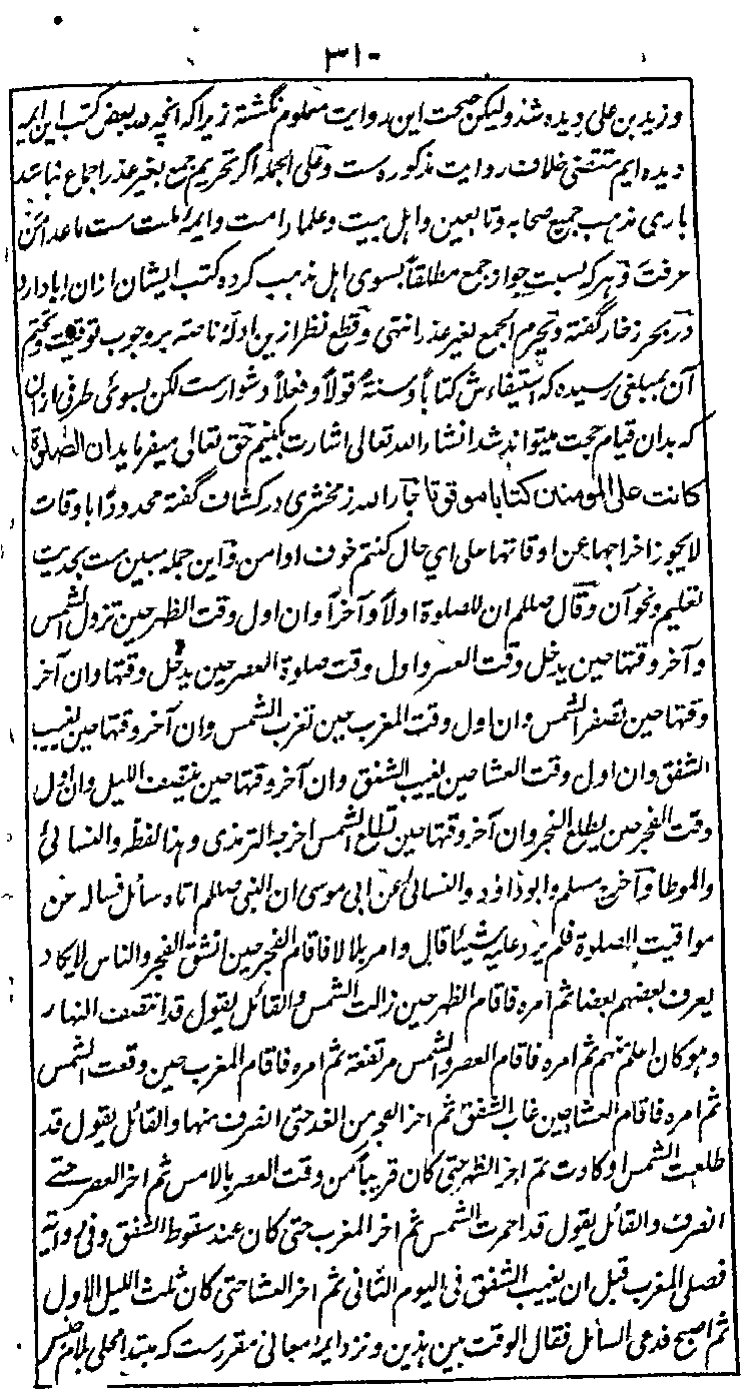 ۳۱۰
وزید بن علی دیده شد ولیکن صحت این روایت معلوم نگشته زیرا که انچه در بعض کتب این ایمه
دیده ایم مقتضی خلاف روایت مذکوره ست وعلی الجمله اگر تحریم جمع بغیر عذر اجماع نباشد
باری مذهب جمیع صحابه وتابعین واهل بیت وعلما رامت وایمهٔ ملت ست ماعدا من
عرفت وهرکه نسبت جواز جمع مطلقاً بسوی اهل مذهب کرده کتب ایشان ازان ابا دارد
در بحر زخار گفته ویحرم الجمع لغیر عذر انتهی وقطع نظر ازین ادلهٔ ناصه بر وجوب توقیت وتحتم
آن بمبلغی رسیده که استیفاءش کتاباً وسنةً قولاً وفعلاً دشوارست لکن بسوی طرفی ازان
که بدان قیام حجت میتواند شد انشاء الله تعالی اشارت بکنیم حق تعالی میفرماید ان الصلوة
کانت علی المومنین کتابا موقوتا جار الله زمخشری در کشاف گفته محدوداً باوقات
لا یجوز اخراجها عن اوقاتها علی ای حال کنتم خوف او امن واین جمله مبین ست بحدیث
تعلیم ونحو آن وقال صلعم ان للصلوة اولاً وآخراً وان اول وقت الظهر حین تزول الشمس
وآخر وقتها حین یدخل وقت العصر واول وقت صلوة العصر حین یدخل وقتها وان آخر
وقتها حین تصفر الشمس وان اول وقت المغرب حین تغرب الشمس وان آخر وقتها حین یغیب
الشفق وان اول وقت العشا حین یغیب الشفق وان آخر وقتها حین ینتصف اللیل وان اول
وقت الفجر حین یطلع الفجر وان آخر وقتها حین تطلع الشمس اخرجه الترمذی وهذا لفظه والنسائی
والموطا وآخرج مسلم وابوداؤد والنسائی عن ابی موسی ان النبی صلعم اتاه سائل فساله عن
مواقیت الصلوة فلم یرد علیه شیئا قال وامر بلالا فاقام الفجر حین انشق الفجر والناس لا یکاد
یعرف بعضهم بعضا ثم امره فاقام الظهر حین زالت الشمس والقائل یقول قد انتصف النهار
وهو کان اعلم منهم ثم امره فاقام العصر والشمس مرتفعة ثم امره فاقام المغرب حین وقعت الشمس
ثم امره فاقام العشا حین غاب الشفق ثم اخر الفجر من الغد حتی انصرف منها والقائل یقول قد
طلعت الشمس او کادت ثم اخر الظهر حتی کان قریباً من وقت العصر بالامس ثم اخر العصر حتی
انصرف والقائل یقول قد احمرت الشمس ثم اخر المغرب حتی کان عند سقوط الشفق وفی روایة
فصلی المغرب قبل ان یغیب الشفق فی الیوم الثانی ثم اخر العشا حتی کان ثلث اللیل الاول
ثم اصبح فدعی السائل فقال الوقت بین هذین ونزد ایمهٔ معانی مقررست که مبتدا محلی بلام جنس